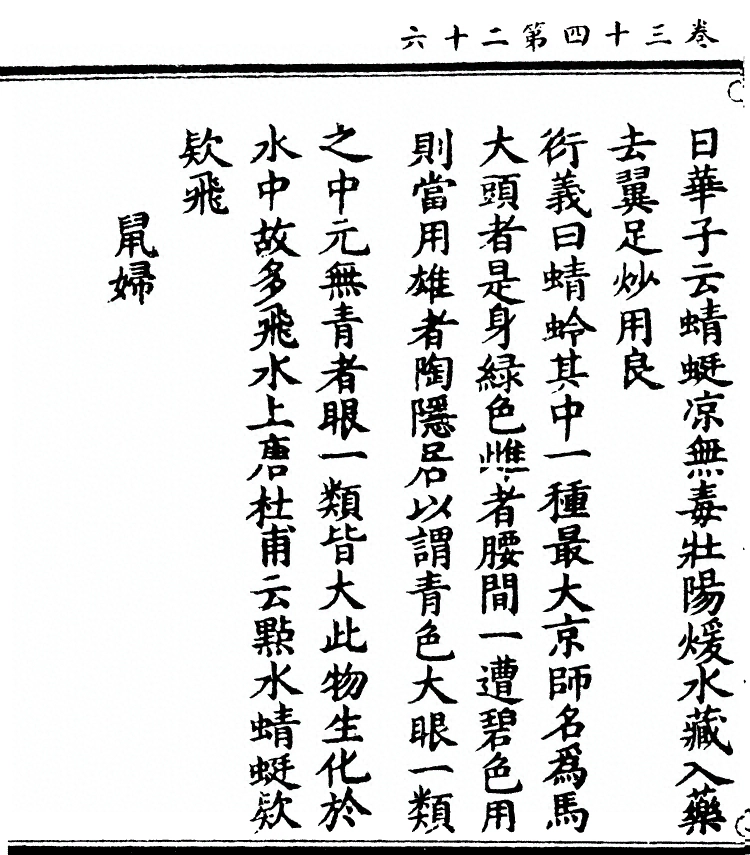 卷三十四第二十六
日華子云蜻蜓凉無毒壯陽煖水藏入藥
去翼足炒用良
衍義曰蜻蛉其中一種最大京師名爲馬
大頭者是身緑色雌者腰間一遭碧色用
則當用雄者陶隱居以謂青色大眼一類
之中元無青者眼一類皆大此物生化於
水中故多飛水上唐杜甫云點水蜻蜓欵
欵飛
鼠婦